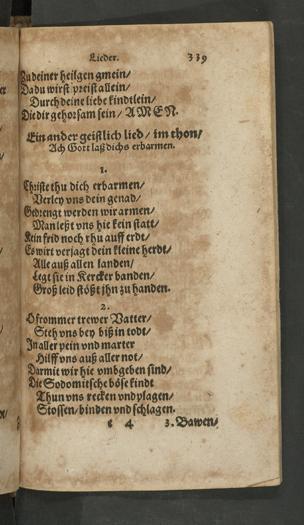 Lieder. 339
Zu deiner heilgen gmein/
Da du wirst preist allein/
Durch deine liebe kindtlein/
Die dir gehorsam sein / AMEN.
Ein ander geistlich lied / im thon/
Ach Gott laß dichs erbarmen.
1.
Christe thu dich erbarmen/
Verley vns dein genad/
Gedrengt werden wir armen/
Man leßt vns hie kein statt/
Kein frid noch rhu auff erdt/
Es wirt verjagt dein kleine herdt/
Alle auß allen landen/
Legt sie in Kercker banden/
Groß leid stößt jhn zu handen.
2.
O frommer trewer Vatter/
Steh vns bey biß in todt/
In aller pein vnd marter
Hilff vns auß aller not/
Darmit wir hie vmbgeben sind/
Die Sodomitsche böse kindt
Thun vns recken vnd plagen/
Stossen/ binden vnd schlagen.
4 3. Bawen/